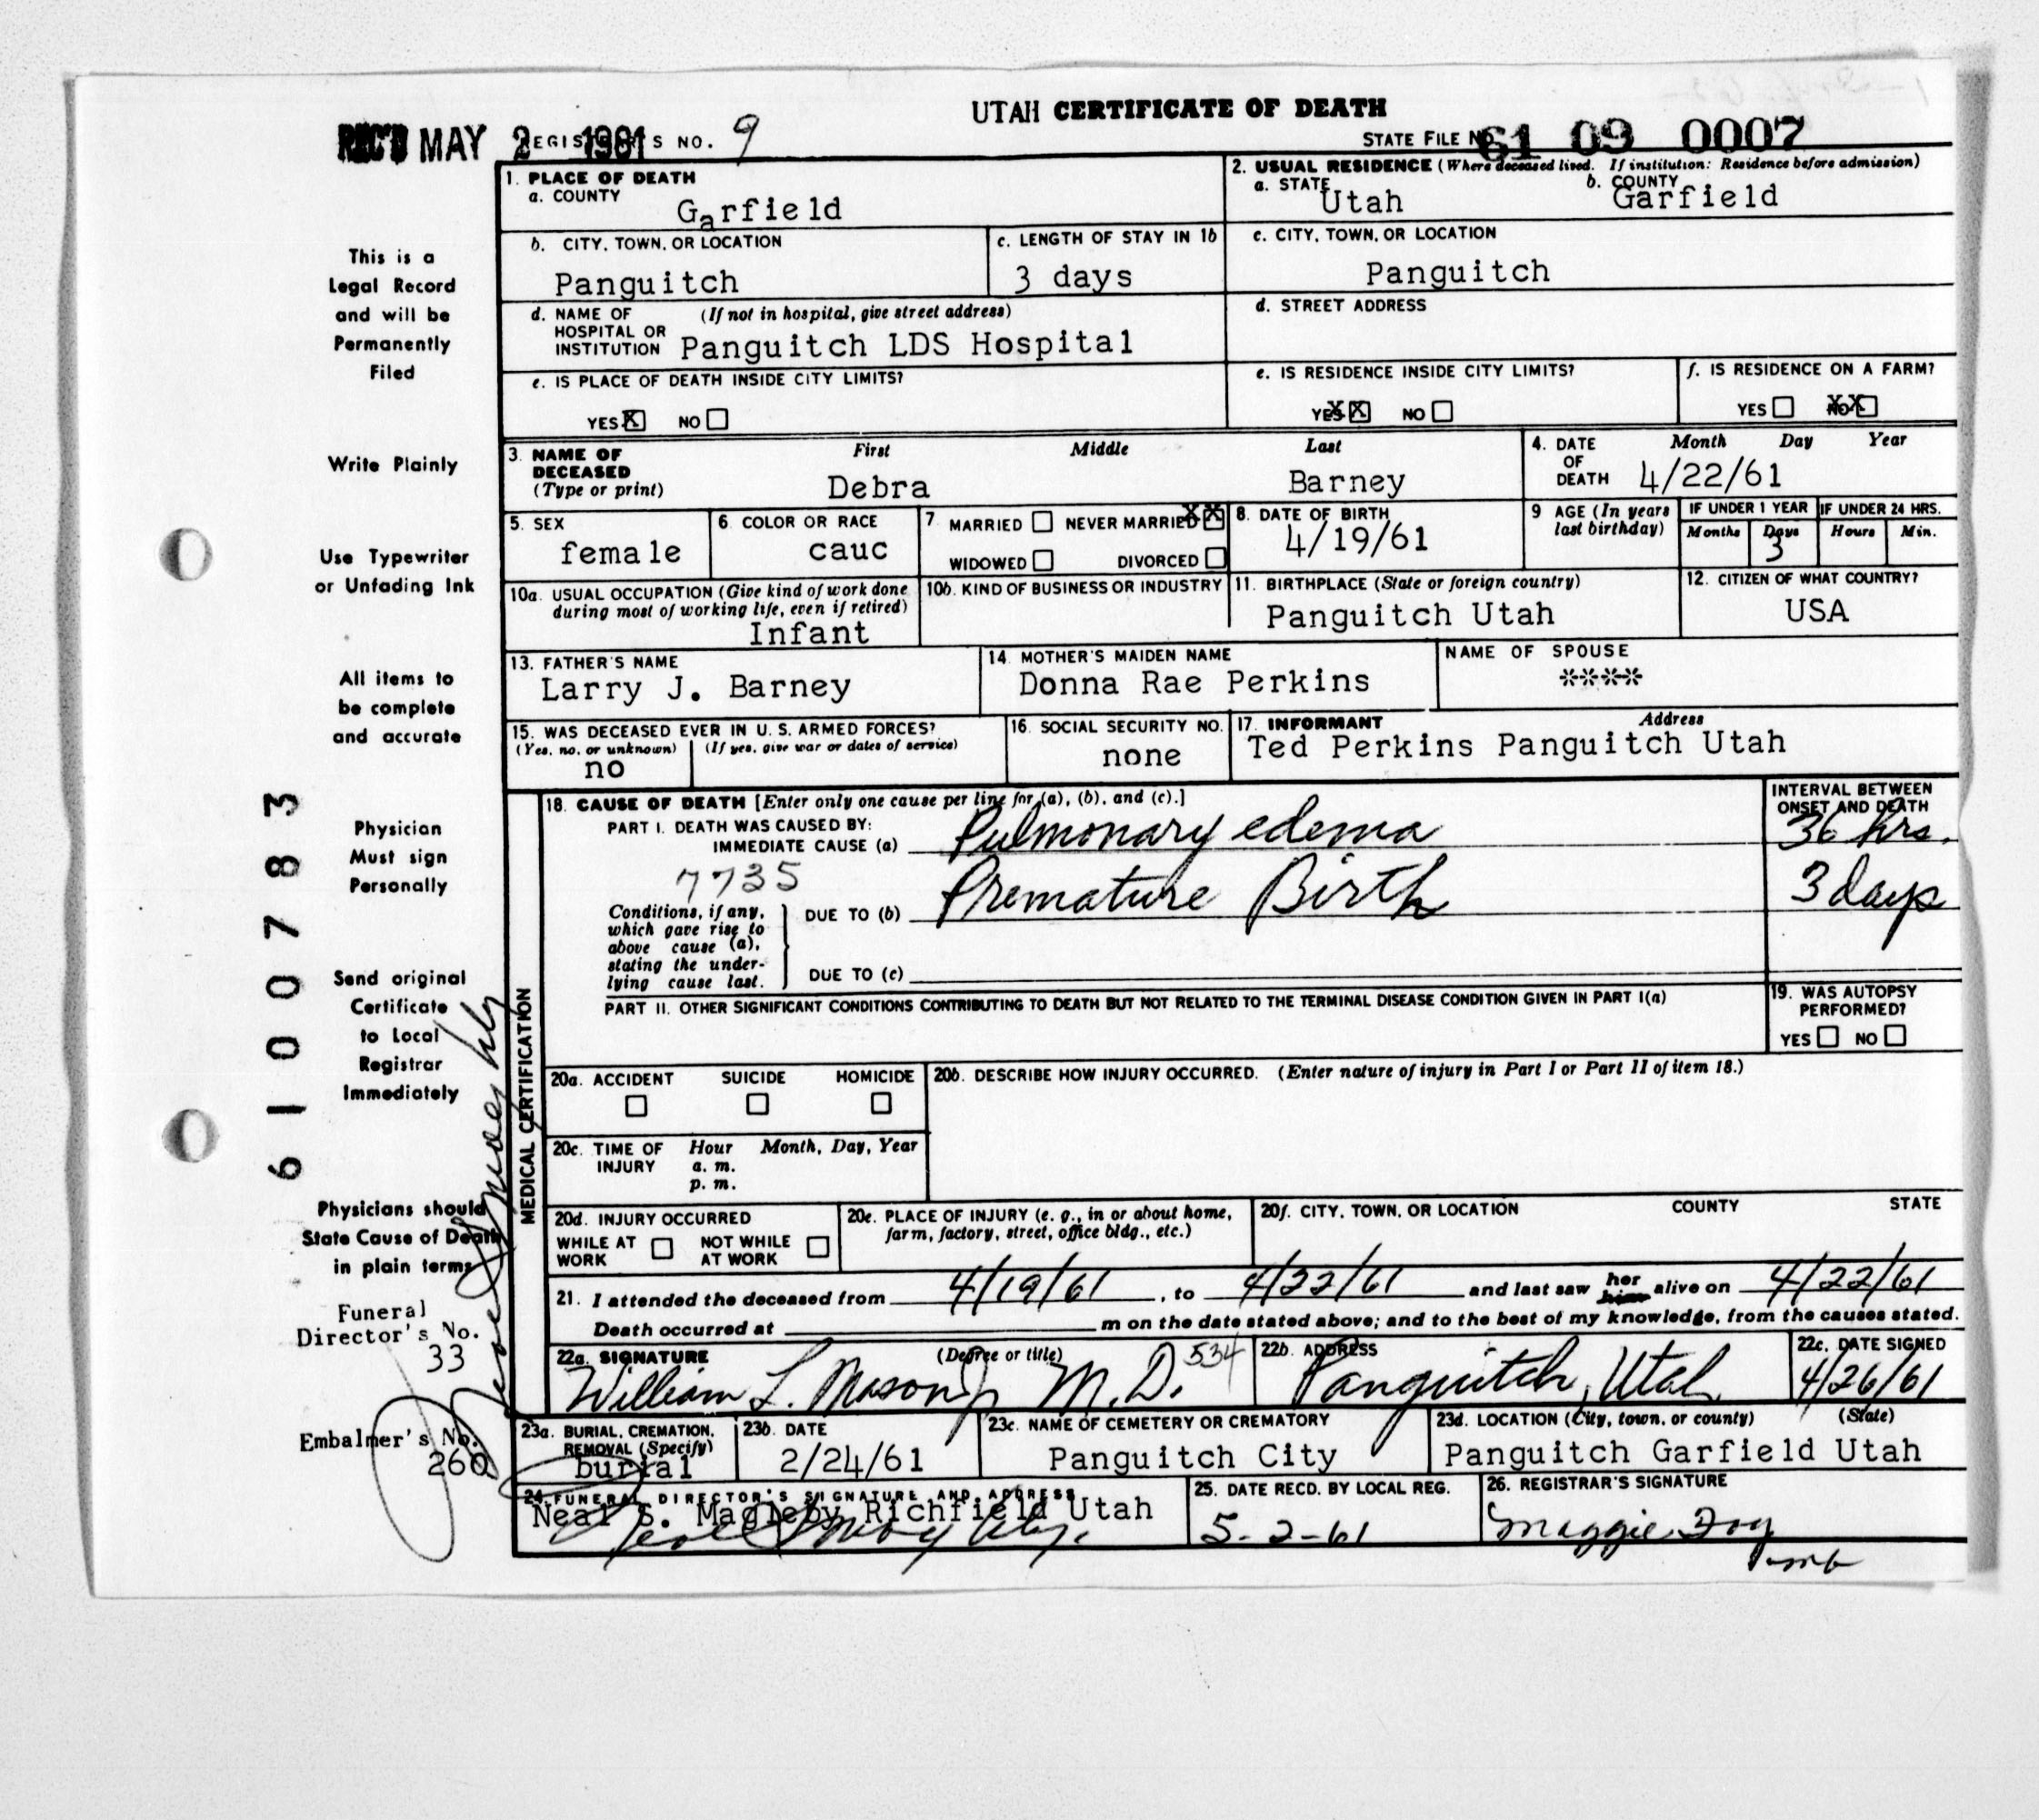 UTAH CERTIFICATE OF DEATH
REC'D MAY 2 1961 REGISTRAR'S NO. 9
STATE FILE NO. 61 09 0007
1. PLACE OF DEATH
a. COUNTY
Garfield
2. USUAL RESIDENCE (Where deceased lived. If institution: Residence before admission)
a. STATE Utah
b. COUNTY Garfield
b. CITY, TOWN, OR LOCATION
Panguitch
c. LENGTH OF STAY IN 1b
3 days
c. CITY, TOWN, OR LOCATION
Panguitch
d. NAME OF (If not in hospital, give street address)
HOSPITAL OR
INSTITUTION Panguitch LDS Hospital
d. STREET ADDRESS
e. IS PLACE OF DEATH INSIDE CITY LIMITS?
YES X NO
e. IS RESIDENCE INSIDE CITY LIMITS?
YES XX NO
f. IS RESIDENCE ON A FARM?
YES NO XX
3. NAME OF DECEASED
(Type or print)
First Middle Last
Debra Barney
4. DATE OF DEATH
Month Day Year
4/22/61
5. SEX
female
6. COLOR OR RACE
cauc
7. MARRIED NEVER MARRIED XX
WIDOWED DIVORCED
8. DATE OF BIRTH
4/19/61
9 AGE (In years last birthday)
IF UNDER 1 YEAR
Months Days
3
IF UNDER 24 HRS.
Hours Min.
10a. USUAL OCCUPATION (Give kind of work done
during most of working life, even if retired)
Infant
10b. KIND OF BUSINESS OR INDUSTRY
11. BIRTHPLACE (State or foreign country)
Panguitch Utah
12. CITIZEN OF WHAT COUNTRY?
USA
13. FATHER'S NAME
Larry J. Barney
14. MOTHER'S MAIDEN NAME
Donna Rae Perkins
NAME OF SPOUSE
****
15. WAS DECEASED EVER IN U. S. ARMED FORCES?
(Yes, no, or unknown) (If yes, give war or dates of service)
no
16. SOCIAL SECURITY NO.
none
17. INFORMANT Address
Ted Perkins Panguitch Utah
MEDICAL CERTIFICATION
18. CAUSE OF DEATH [Enter only one cause per line for (a), (b), and (c).]
INTERVAL BETWEEN
ONSET AND DEATH
PART I. DEATH WAS CAUSED BY:
IMMEDIATE CAUSE (a) Pulmonary edema 36 hrs.
7735
Conditions, if any,
which gave rise to
above cause (a),
stating the under-
lying cause last.
DUE TO (b) Premature Birth 3 days
DUE TO (c)
PART II. OTHER SIGNIFICANT CONDITIONS CONTRIBUTING TO DEATH BUT NOT RELATED TO THE TERMINAL DISEASE CONDITION GIVEN IN PART I(a)
19. WAS AUTOPSY
PERFORMED?
YES NO
20a. ACCIDENT SUICIDE HOMICIDE
20b. DESCRIBE HOW INJURY OCCURRED. (Enter nature of injury in Part I or Part II of item 18.)
20c. TIME OF INJURY
Hour Month, Day, Year
a. m.
p. m.
20d. INJURY OCCURRED
WHILE AT WORK NOT WHILE AT WORK
20e. PLACE OF INJURY (e. g., in or about home,
farm, factory, street, office bldg., etc.)
20f. CITY, TOWN, OR LOCATION COUNTY STATE
21. I attended the deceased from 4/19/61, to 4/22/61 and last saw her him alive on 4/22/61
Death occurred at m on the date stated above; and to the best of my knowledge, from the causes stated.
22a. SIGNATURE (Degree or title)
William L. Mason Jr M.D. 534
22b. ADDRESS
Panguitch, Utah
22c. DATE SIGNED
4/26/61
23a. BURIAL, CREMATION,
REMOVAL (Specify)
burial
23b. DATE
2/24/61
23c. NAME OF CEMETERY OR CREMATORY
Panguitch City
23d. LOCATION (City, town, or county) (State)
Panguitch Garfield Utah
24. FUNERAL DIRECTOR'S SIGNATURE AND ADDRESS
Neal S. Magleby Richfield Utah
Neal S Magleby
25. DATE RECD. BY LOCAL REG.
5-2-61
26. REGISTRAR'S SIGNATURE
Maggie Foy
This is a
Legal Record
and will be
Permanently
Filed
Write Plainly
Use Typewriter
or Unfading Ink
All items to
be complete
and accurate
Physician
Must sign
Personally
Send original
Certificate
to Local
Registrar
Immediately
Physicians should
State Cause of Death
in plain terms
Funeral
Director's No.
33
Embalmer's No.
260
Neal S Magleby
6100783